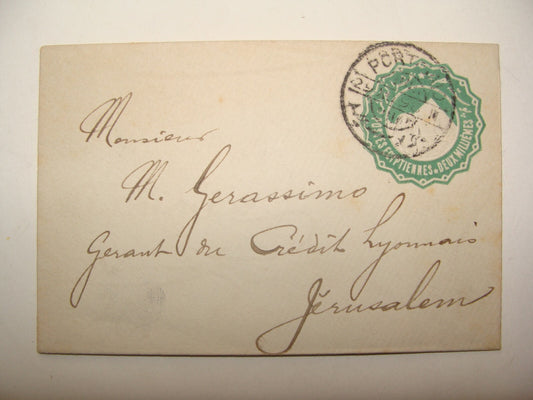 PORT
ES EGYPTIENNES DEUX MILLIEMES
Monsieur
M. Gerassimo
Gerant du Crédit Lyonnais
Jérusalem